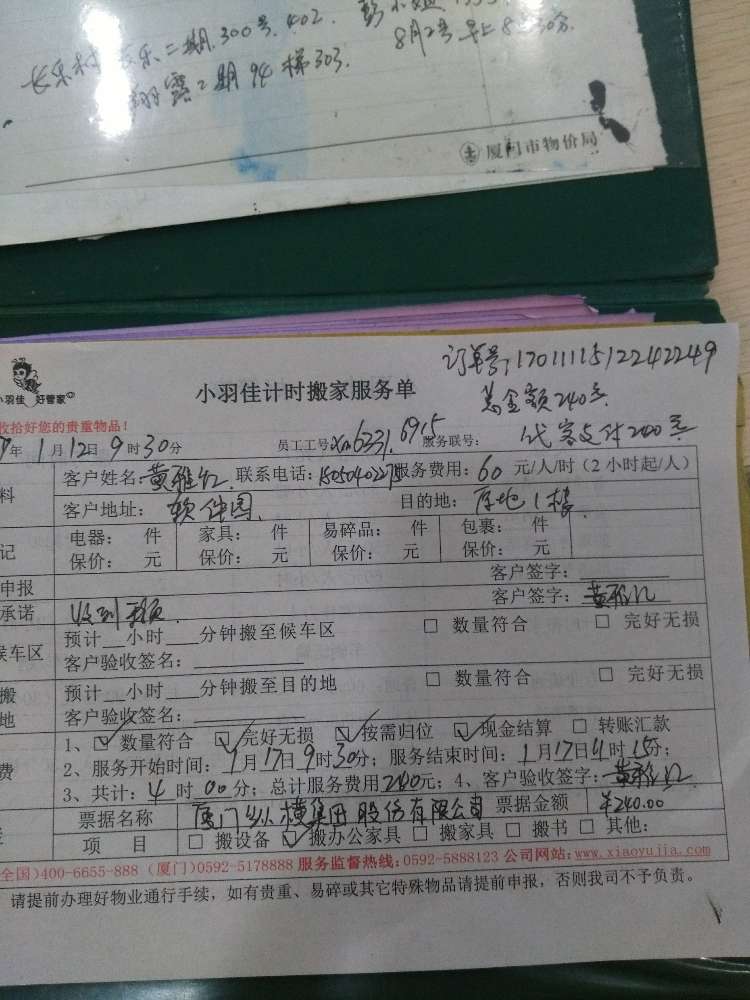 长乐村 长乐二期300号402 彭小姐
8月2号早上8点30分
翔鹭2期94梯303.
厦门市物价局
订单号:1701111512242249
小羽佳 好管家
小羽佳计时搬家服务单
总金额240元
收拾好您的贵重物品!
代客支付240元
年1月12日9时30分 员工工号:xm6231.6915 服务联号:
客户姓名:黄雅红 联系电话:15050402275 服务费用:60元/人/时(2小时起/人)
客户地址:软件园 目的地:原地1楼
电器: 件 家具: 件 易碎品: 件 包裹: 件
保价: 元 保价: 元 保价: 元 保价: 元
申报 客户签字:
承诺 收到 客户签字:黄雅红
候车区 预计__小时__分钟搬至候车区 □ 数量符合 □ 完好无损
客户验收签名:
搬 预计__小时__分钟搬至目的地 □ 数量符合 □ 完好无损
地 客户验收签名:
1、☑ 数量符合 ☑ 完好无损 ☑ 按需归位 ☑ 现金结算 □ 转账汇款
费 2、服务开始时间:1月17日9时30分;服务结束时间:1月17日11时15分;
3、共计:4时00分;总计服务费用240元;4、客户验收签字:黄雅红
票据名称 厦门纵横集团股份有限公司 票据金额 ¥240.00
项 目 □ 搬设备 ☑ 搬办公家具 □ 搬家具 □ 搬书 □ 其他:
全国)400-6655-888 (厦门)0592-5178888 服务监督热线:0592-5888123 公司网站:www.xiaoyujia.com
请提前办理好物业通行手续,如有贵重、易碎或其它特殊物品请提前申报,否则我司不予负责。